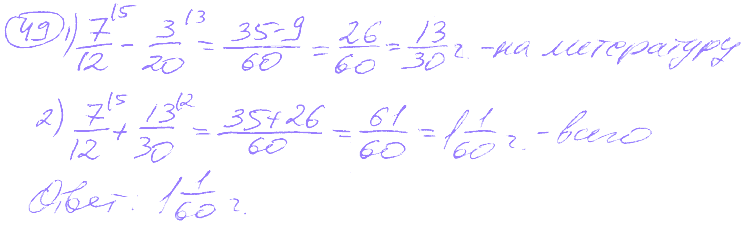 49 1) 7/12 ⁽⁵ - 3/20 ⁽³ = 35-9/60 = 26/60 = 13/30 г. - на литературу
2) 7/12 ⁽⁵ + 13/30 ⁽² = 35+26/60 = 61/60 = 1 1/60 г. - всего
Ответ: 1 1/60 г.